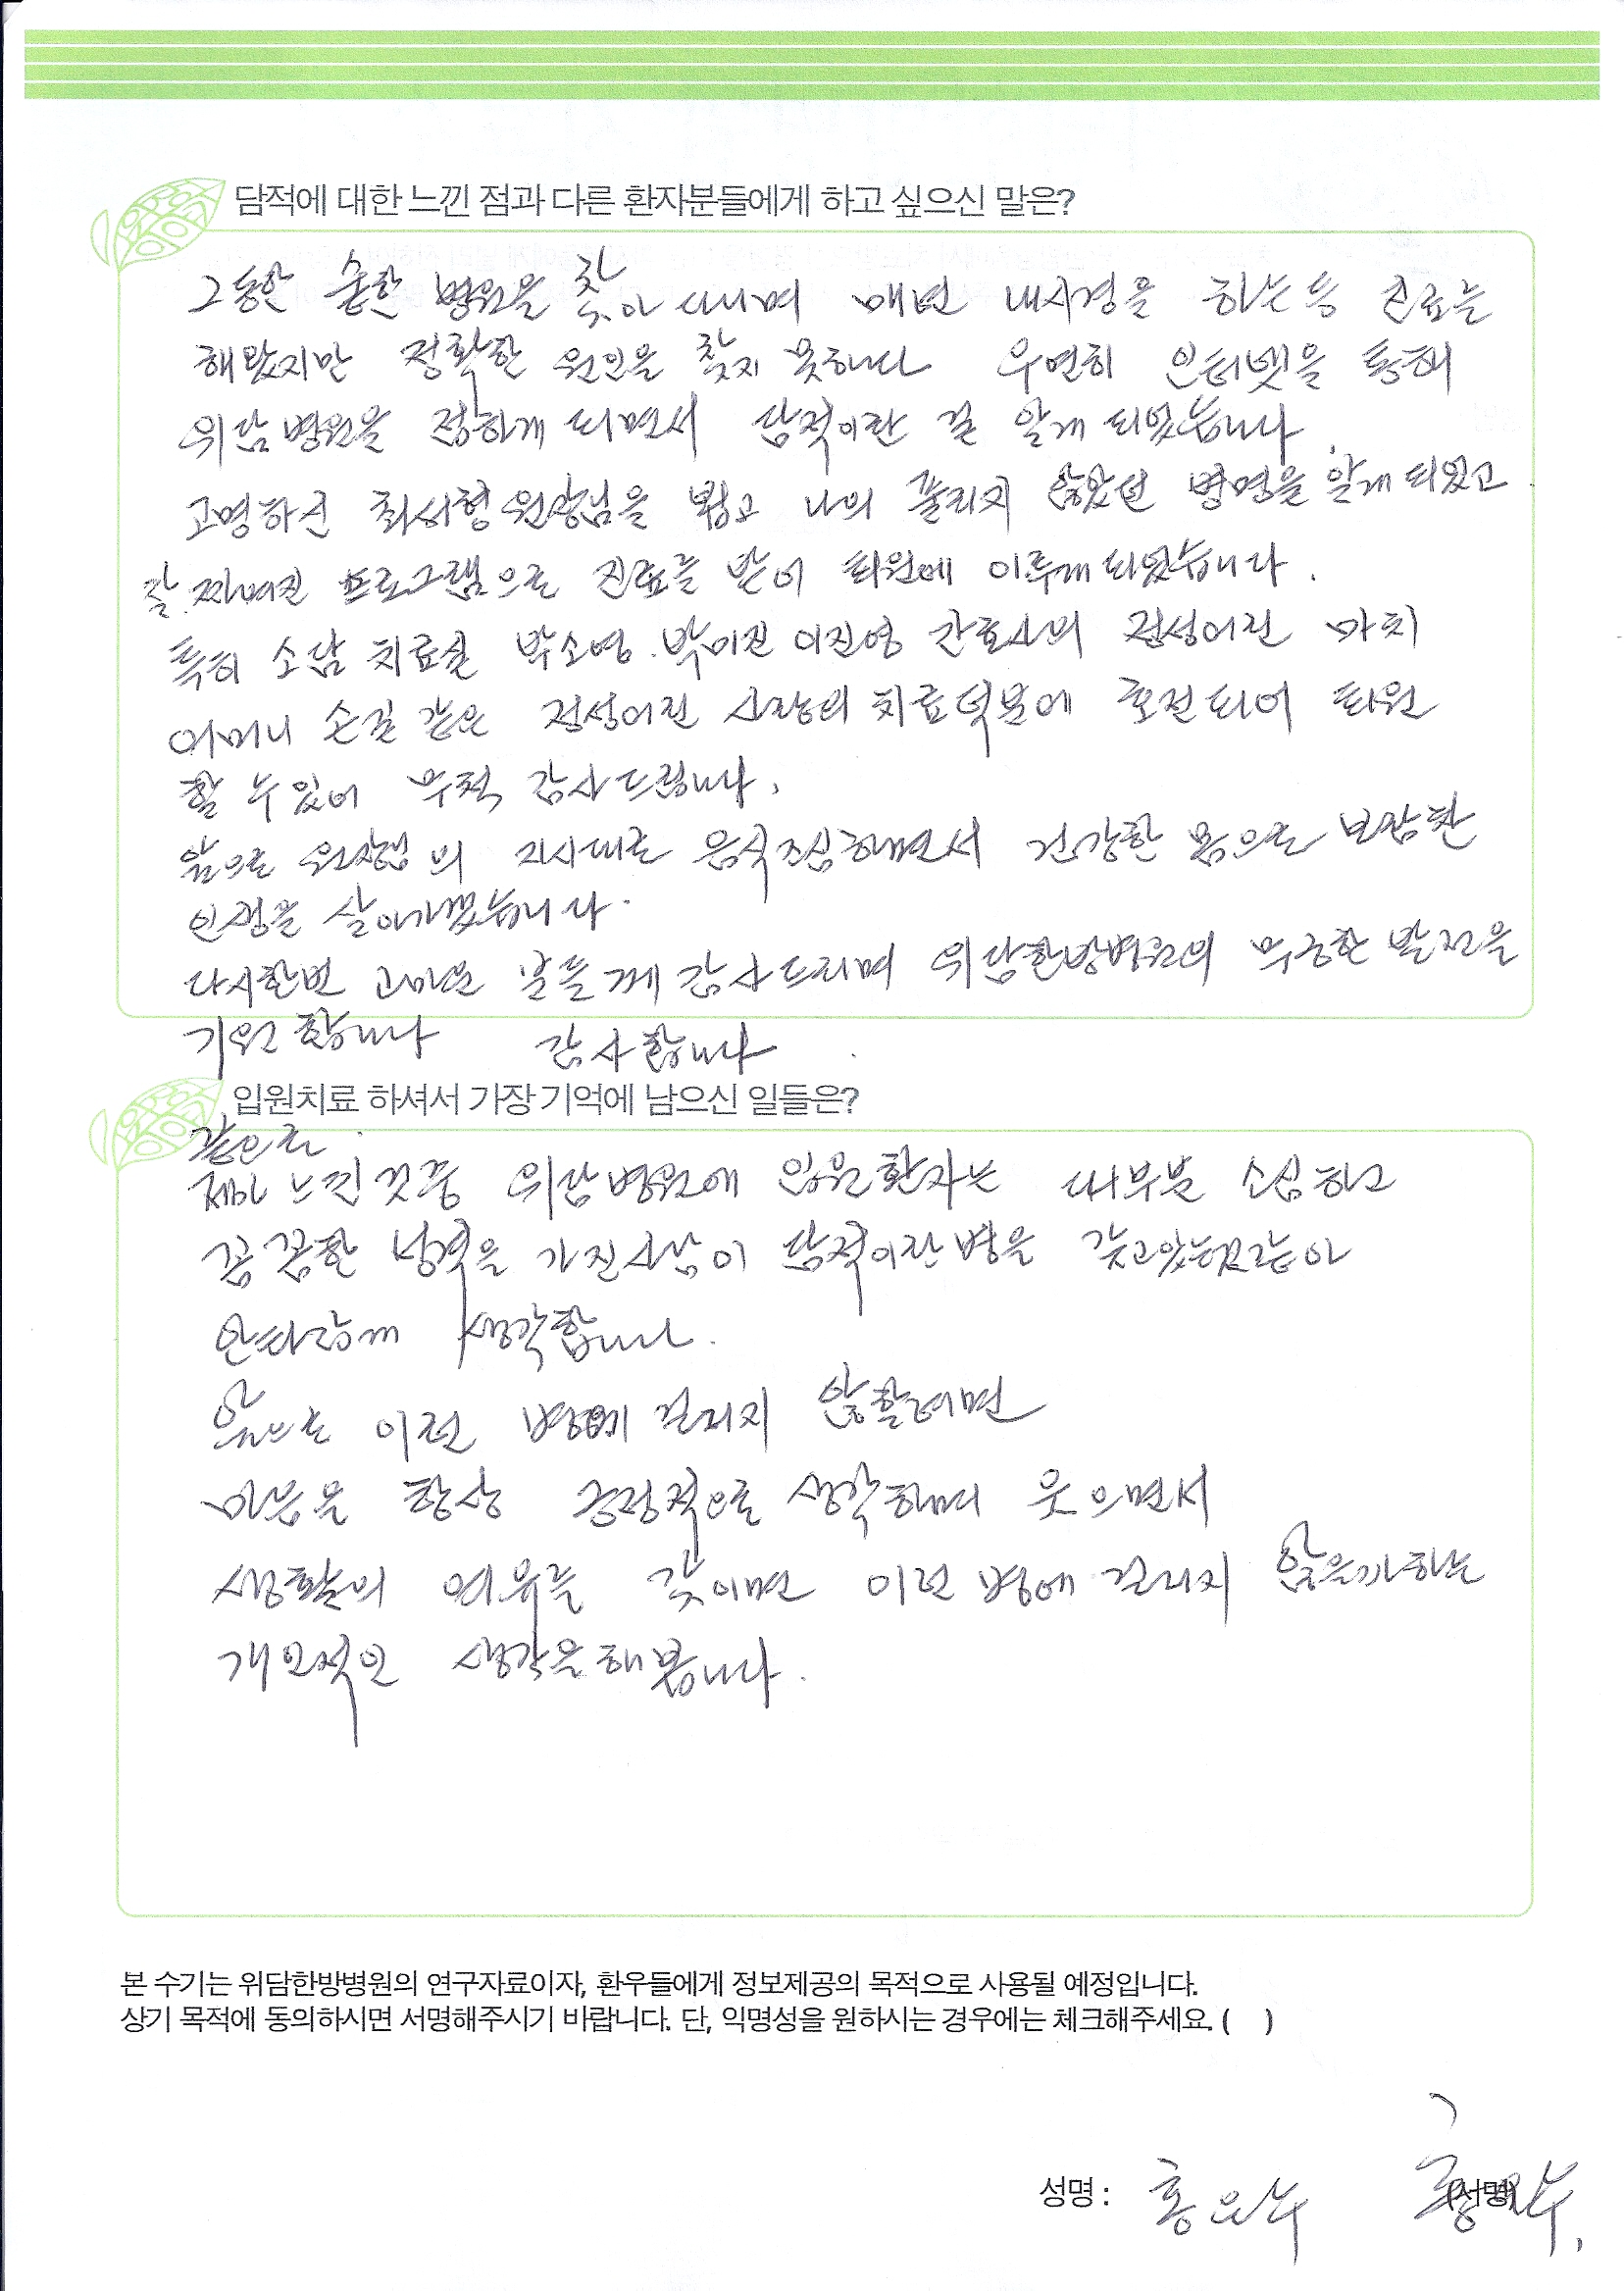 담적에 대한 느낀 점과 다른 환자분들에게 하고 싶으신 말은?
그동안 숱한 병원을 찾아 다니며 매번 내시경을 하는등 진료는
해왔지만 정확한 원인을 찾지 못하다 우연히 인터넷을 통해
위담병원을 접하게 되면서 담적이란 걸 알게 되었습니다.
고명하신 최서형 원장님을 뵙고 나의 풀리지 않았던 병명을 알게 되었고
잘 짜여진 프로그램으로 진료를 받어 퇴원에 이루게 되었습니다.
특히 소담 치료실 박소영. 박미진 이진영 간호사의 정성어린 마치
어머니 손길 같은 정성어린 사랑의 치료덕분에 호전되어 퇴원
할 수 있어 무척 감사드립니다.
앞으로 원장님의 지시대로 음식조심하면서 건강한 몸으로 보람찬
인생을 살아가겠습니다.
다시한번 고마운 분들께 감사드리며 위담한방병원의 무궁한 발전을
기원합니다 감사합니다.
입원치료 하셔서 가장 기억에 남으신 일들은?
끝으로.
제가 느낀것중 위담병원에 입원환자는 대부분 소심하고
꼼꼼한 성격을 가진사람이 담적이란 병을 갖고있는것같아
안타깝게 생각합니다.
앞으로 이런 병에 걸리지 않할려면
마음을 항상 긍정적으로 생각하며 웃으면서
생활의 여유를 갖이면 이런 병에 걸리지 않을까하는
개인적인 생각을해봅니다.
본 수기는 위담한방병원의 연구자료이자, 환우들에게 정보제공의 목적으로 사용될 예정입니다.
상기 목적에 동의하시면 서명해주시기 바랍니다. 단, 익명성을 원하시는 경우에는 체크해주세요. ( )
성명 : 홍은수 (서명)